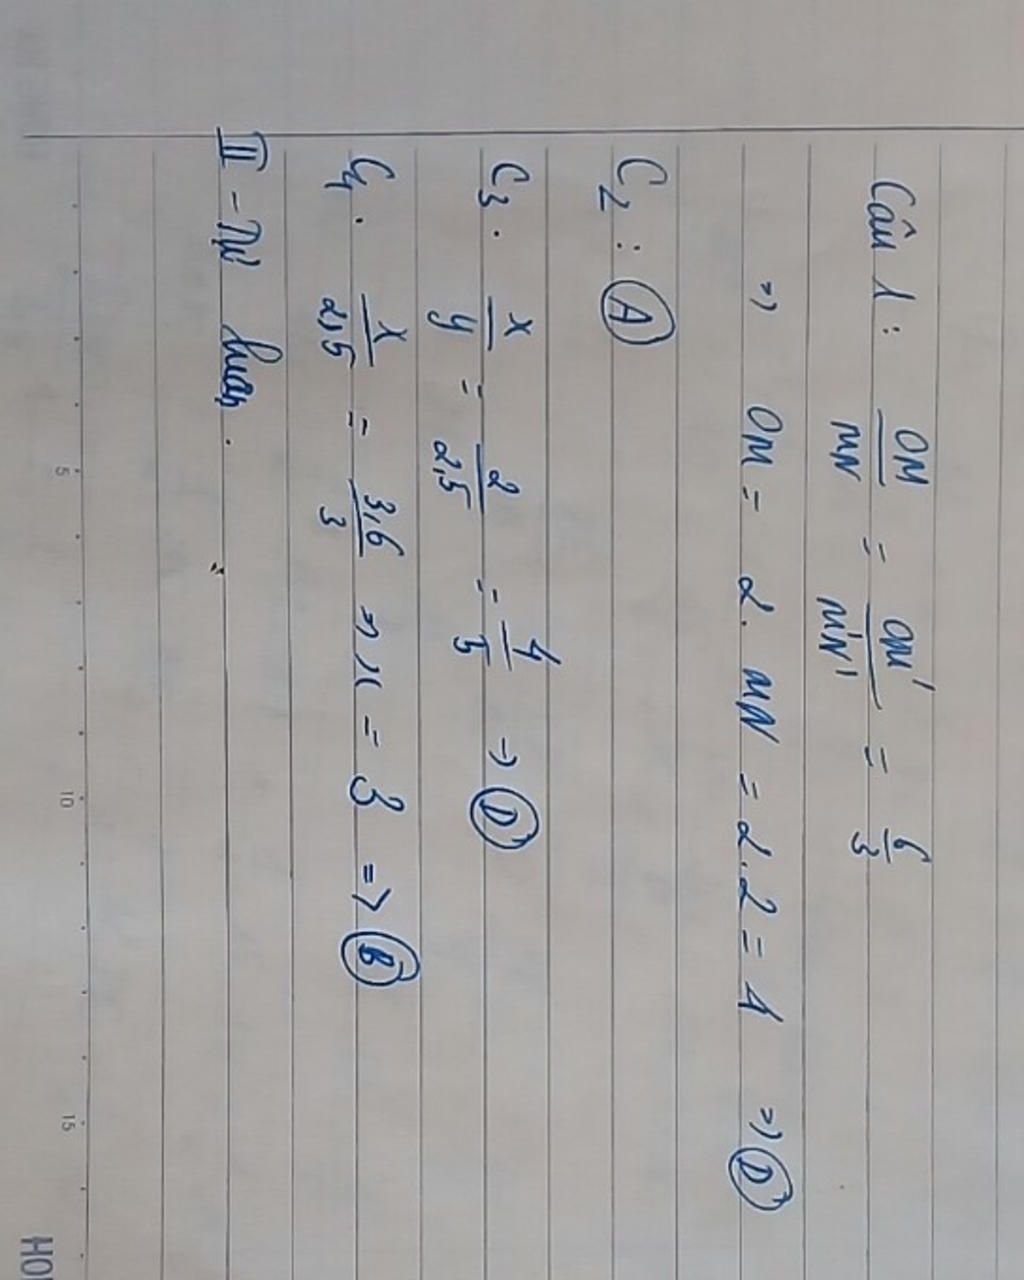 Câu 1: OM/MN = OM'/M'N' = 6/3
=> OM = 2. MN = 2.2 = 4 => D
C2: A
C3. x/y = 2/2,5 = 4/5 => D
C4. x/2,5 = 3,6/3 => x = 3 => B
II - Tự luận.
5 10 15